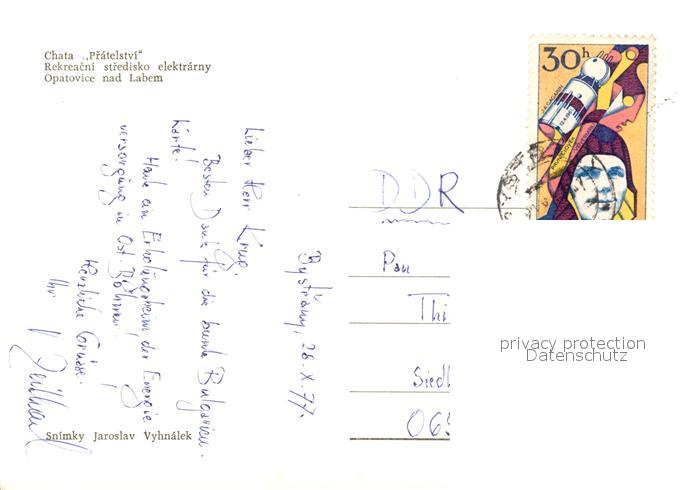 Chata „Přátelství“
Rekreační středisko elektrárny
Opatovice nad Labem
30h
J.A. GAGARIN
12.4.1961
Bystřany, 28.X.77.
Lieber Herr Krug,
Besten Dank für die bunte Bulgarien-
karte!
Heute ein Erholungsheim der Energie-
versorgung in Ost-Böhmen!
Herzliche Grüsse
Ihr
DDR
Pan
Thi
Siedl
065
privacy protection
Datenschutz
Snímky Jaroslav Vyhnálek